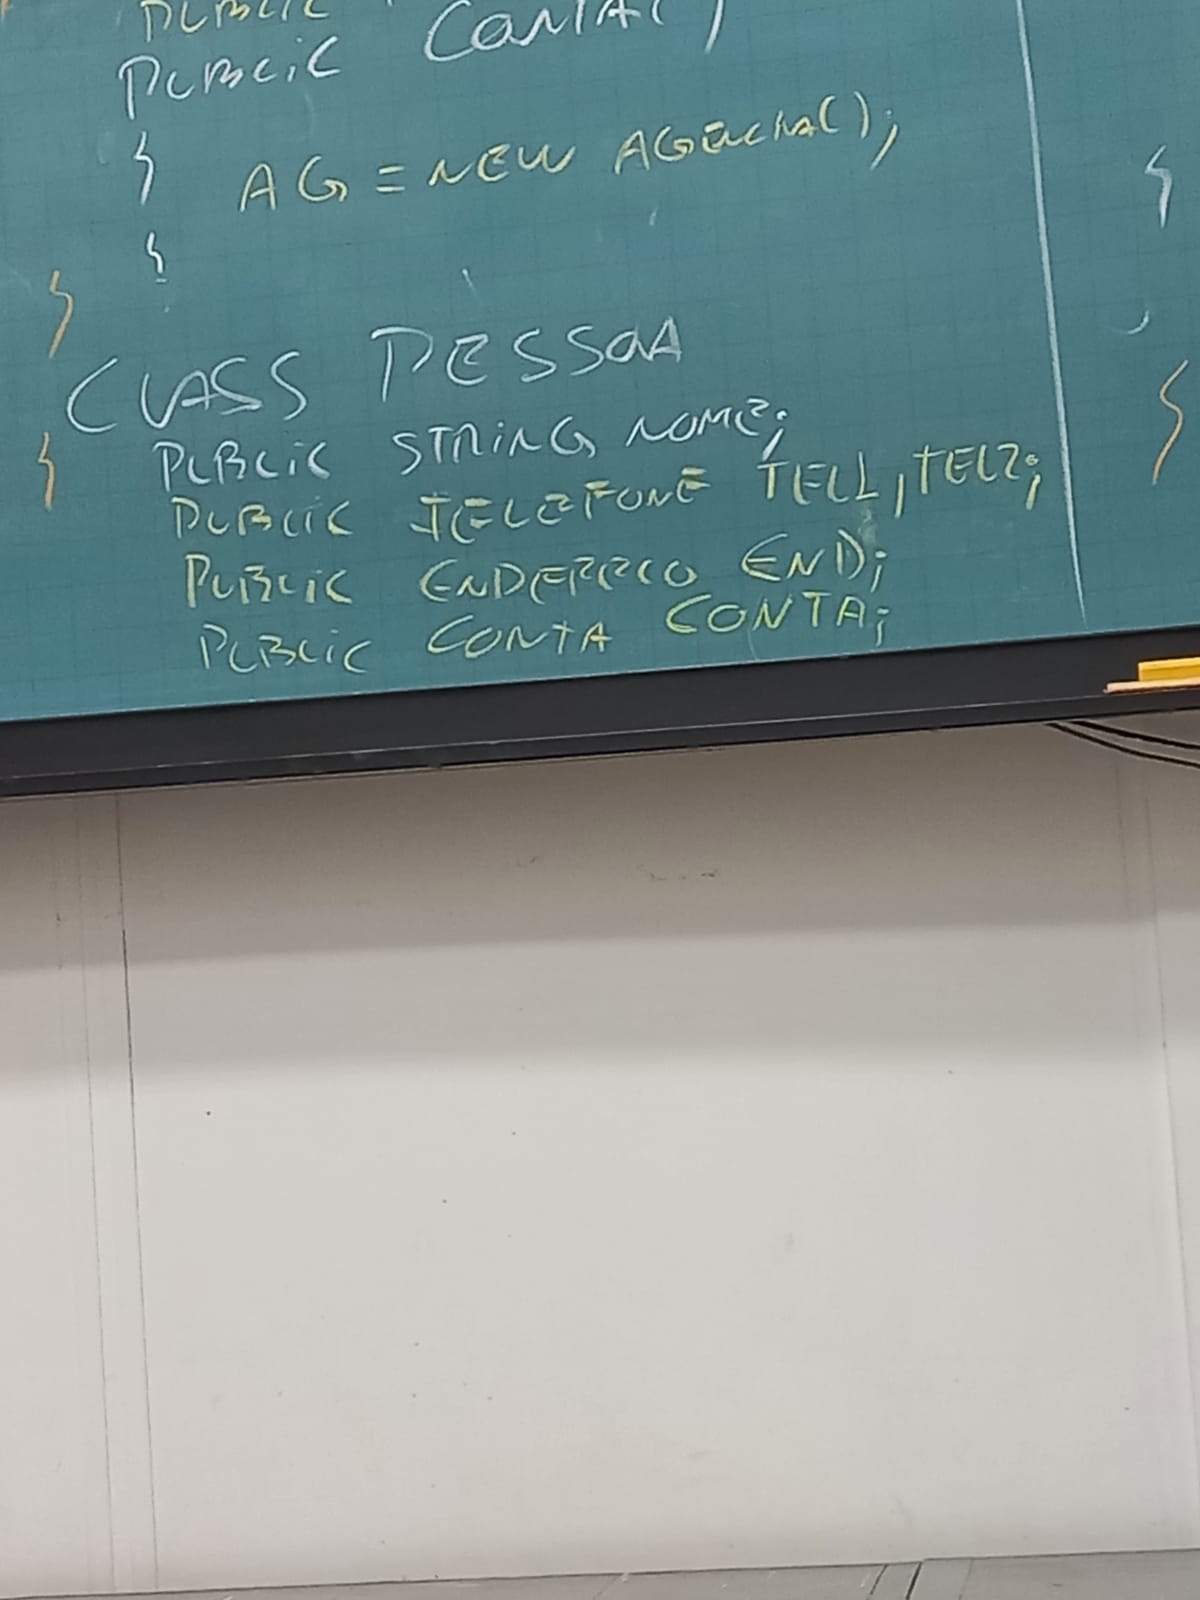 PUBLIC
PUBLIC CONTA( )
{ AG = NEW AGENCIA();
}
}
CLASS PESSOA
{ PUBLIC STRING NOME;
PUBLIC TELEFONE TEL1, TEL2;
PUBLIC ENDERECO END;
PUBLIC CONTA CONTA;
}
}